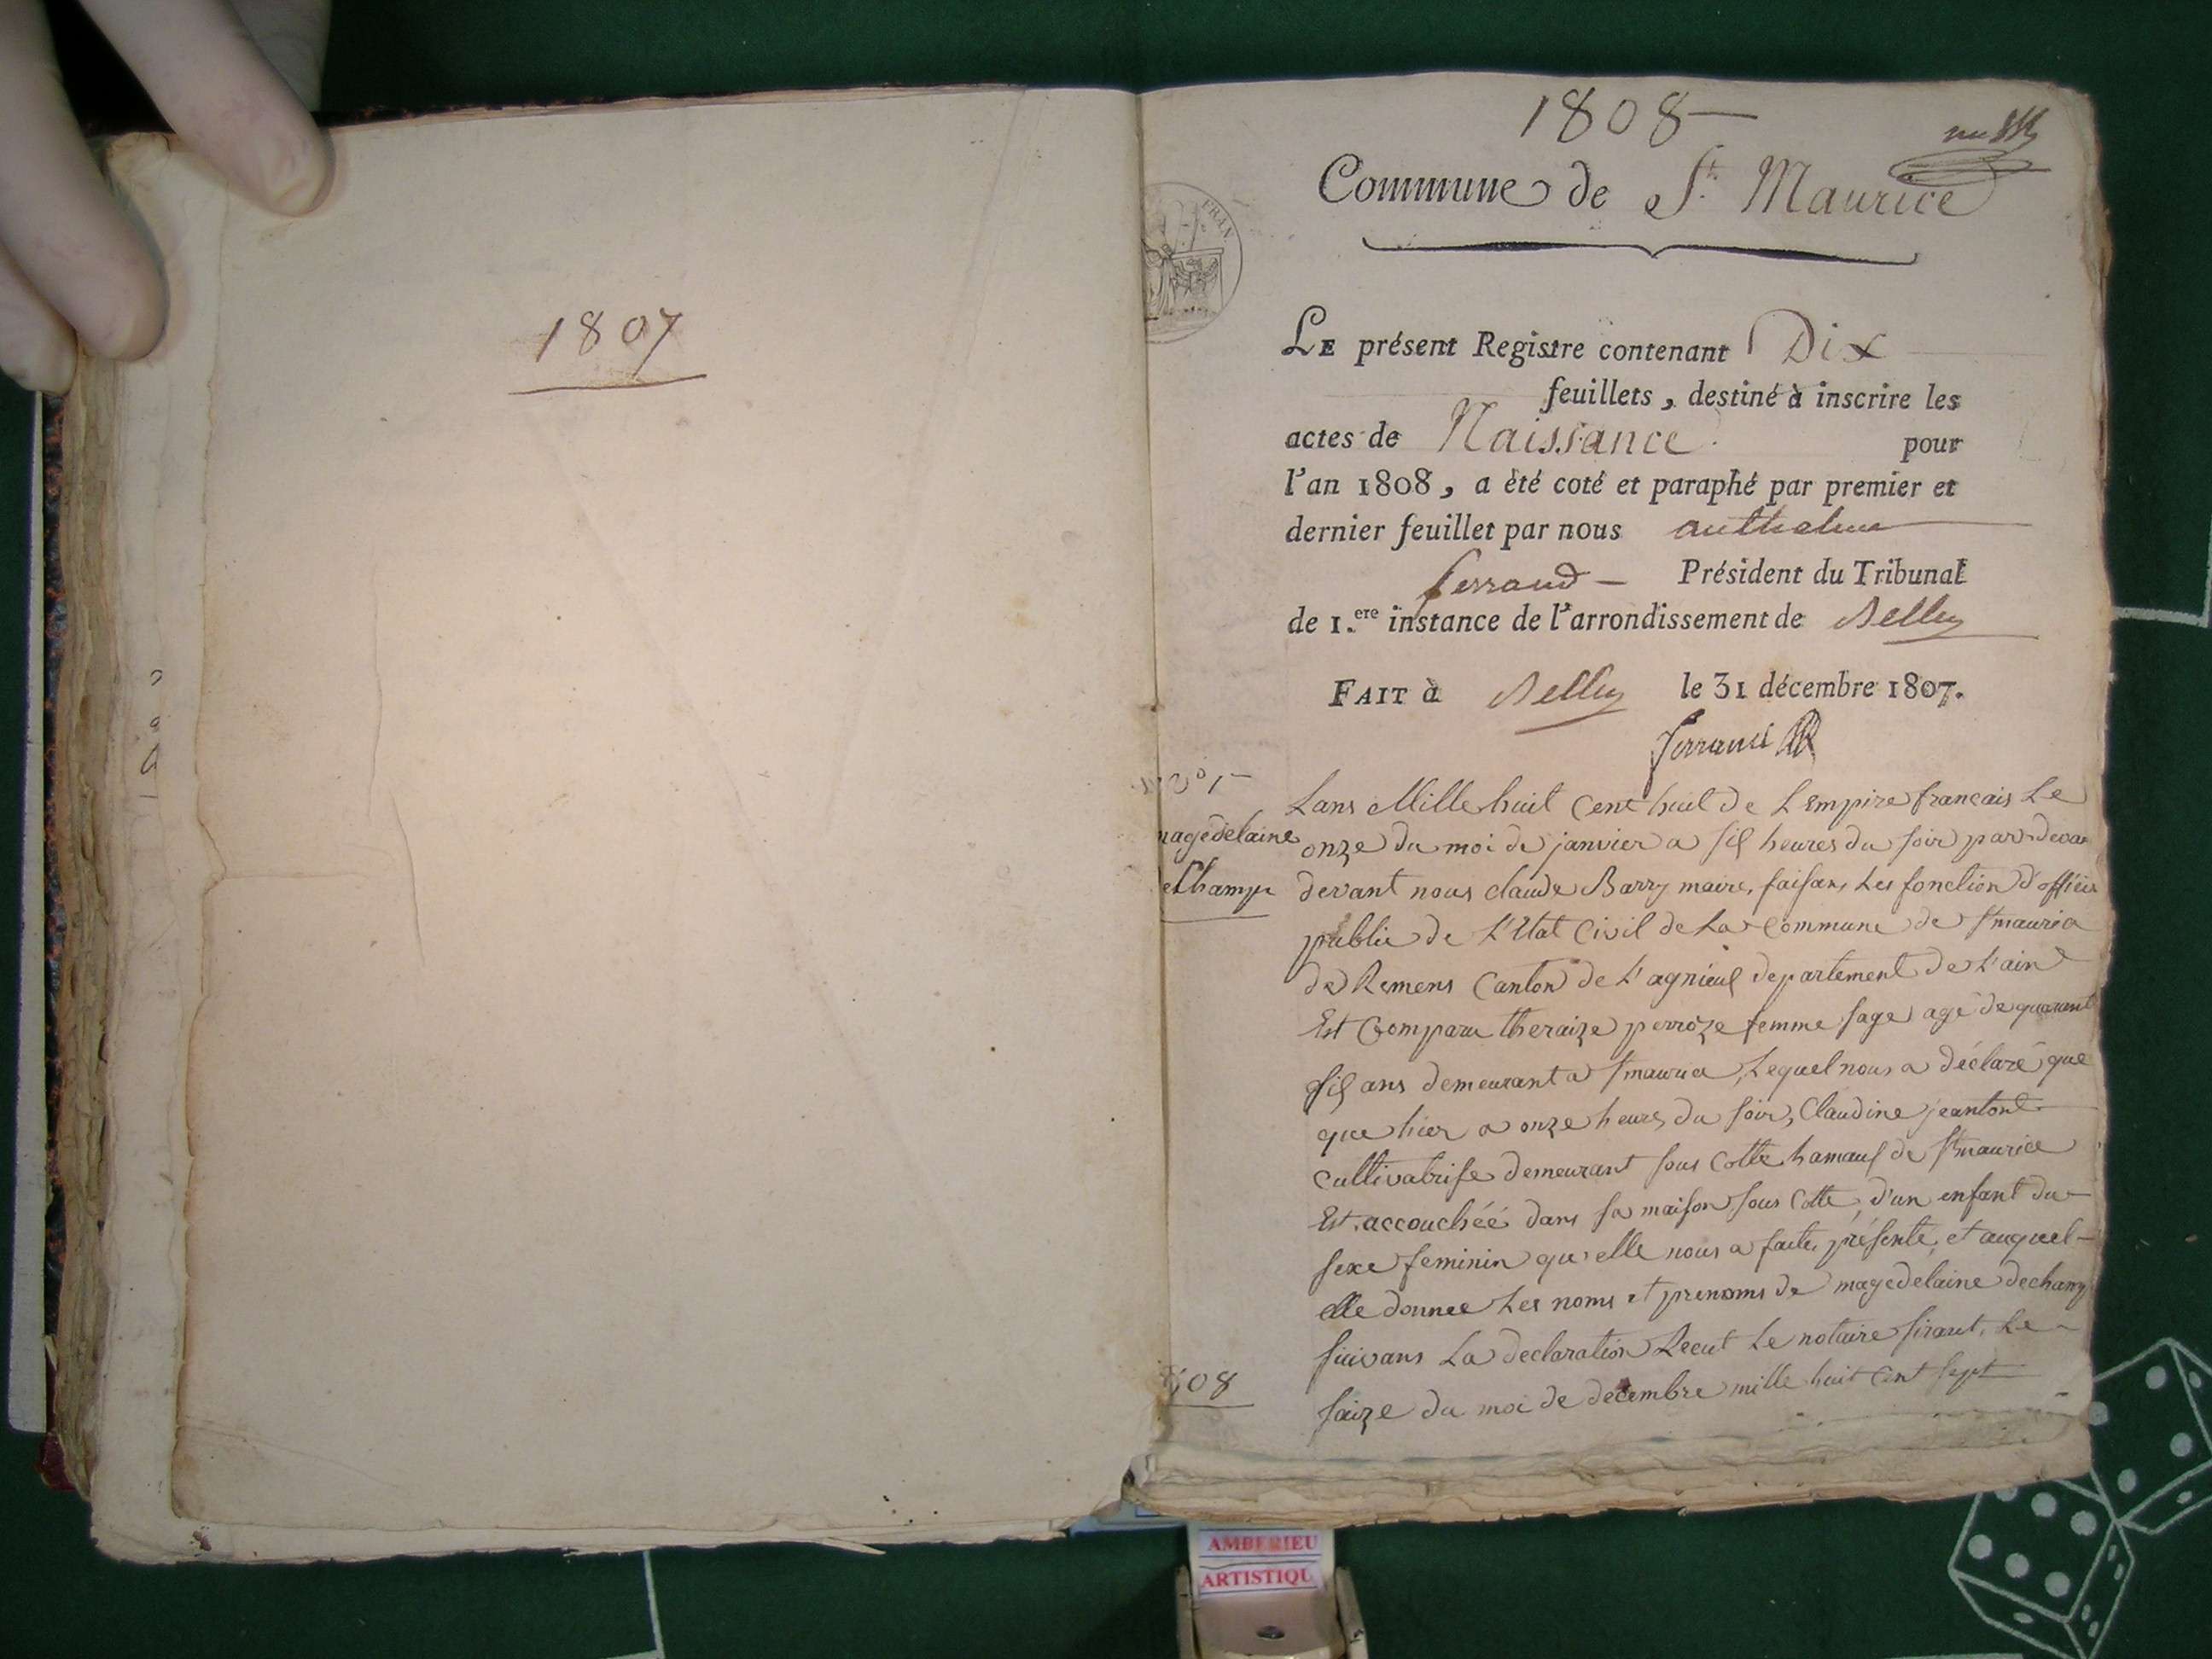 1807
1808
Commune de St. Maurice
FRAN
LE présent Registre contenant Dix
feuillets, destiné à inscrire les
actes de Naissance pour
l'an 1808, a été coté et paraphé par premier et
dernier feuillet par nous anthelme
ferrand Président du Tribunal
de 1.ere instance de l'arrondissement de Belley
FAIT à Belley le 31 décembre 1807.
ferrand
magedelaine
deChamp
Lans Mille huit Cent huit de L'Empire francais Le
onze du moi de janvier a six heures du soir par devan
devant nous claude Barry maire, faisans Les fonction d'officie
publie de L'Etat Civil de La Commune de St maurice
de Remens Canton de L'agnieux departement de L'ain
Est Comparu theraize perroze femme sage agé de quarant
six ans demeurant a St maurice, Lequel nous a déclaré que
que hier a onze heures du soir, Claudine jeanton
Cultivatrise demeurant sous Cotte hamaux de St maurice
Est accouchéé dans sa maison sous Cotte, d'un enfant du
sexe feminin qu'elle nous a faite présenté, et auquel
elle donnee Les noms et prenoms de magedelaine dechamp
suivans La declaration Recut Le notaire sirant, Le
saize du moi de decembre mille huit Cent sept
808
AMBERIEU
ARTISTIQU